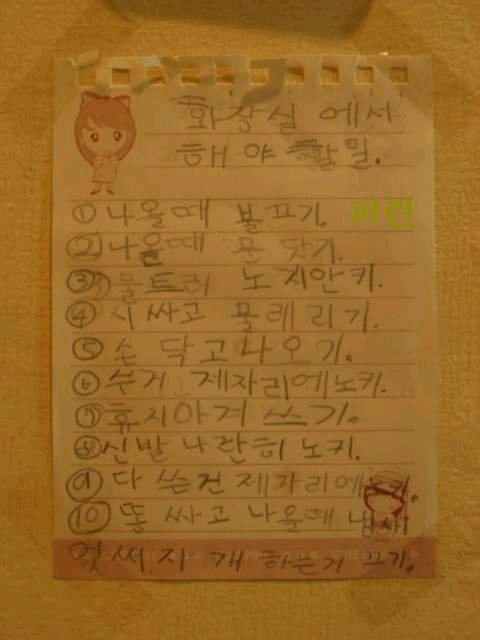 화장실 에서
해야 할일.
① 나올때 불끄기. 퍼런
② 나올때 문 닷기.
③ 물트러 노치안키.
④ 시 싸고 물레리기.
⑤ 손 닥고 나오기.
⑥ 쓴거 제자리에노키.
⑦ 휴지아겨 쓰기.
⑧ 신발 나란히 노키.
⑨ 다 쓴건 제자리에노키.
⑩ 똥 싸고 나올때 냄새
업써지 개 하는거 끄기.